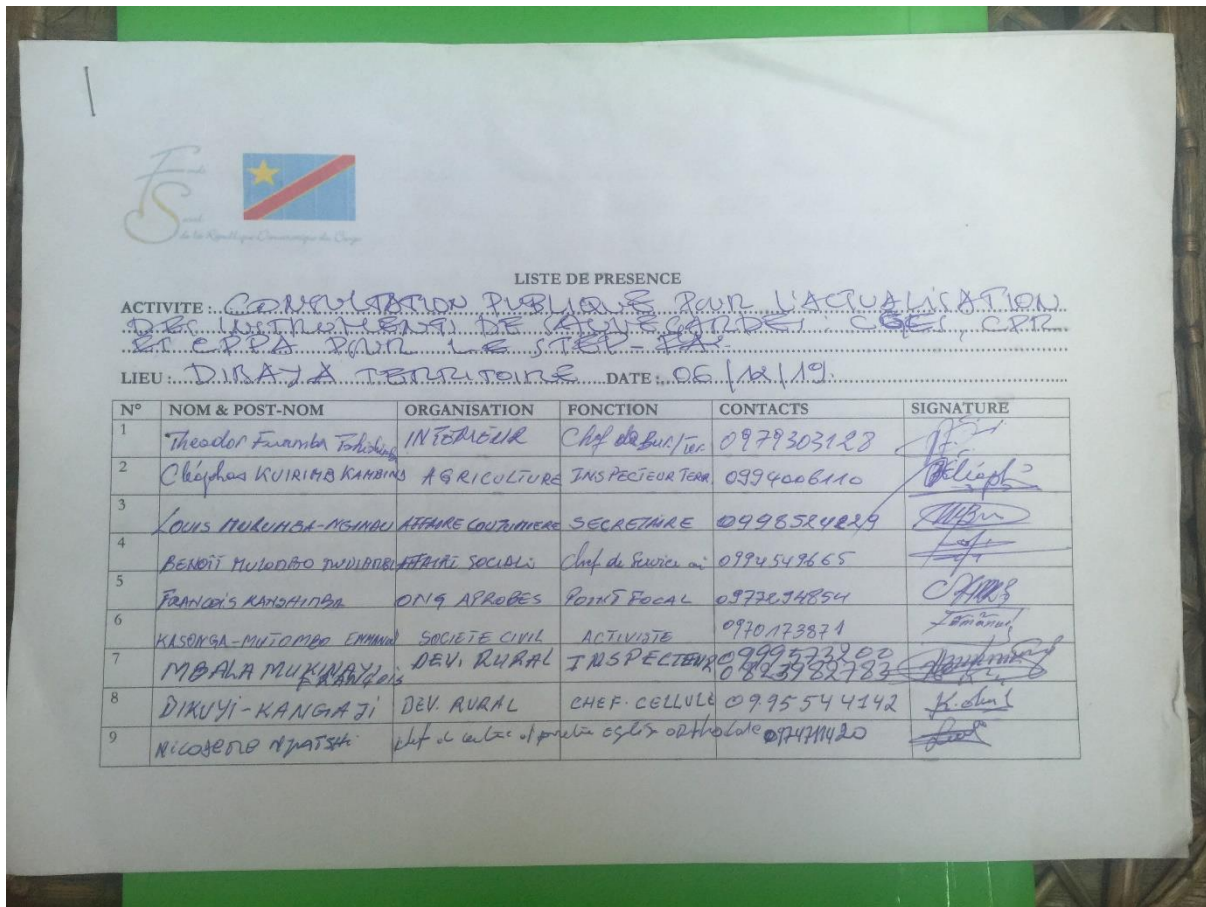 Fonds
Social
de la République Démocratique du Congo
LISTE DE PRESENCE
ACTIVITE : CONSULTATION PUBLIQUE POUR L'ACTUALISATION
DES INSTRUMENTS DE SAUVEGARDE : CGES, CPR
ET CPPA POUR LE STEP-FA.
LIEU : DIBAYA TERRITOIRE DATE : 06/12/19.
N° NOM & POST-NOM ORGANISATION FONCTION CONTACTS SIGNATURE
1 Theodor Fuamba INTERIEUR Chef de Bur./Ter. 0979303128
2 Cléophas KUIRIMB KAMBINS AGRICULTURE INSPECTEUR TERR 0994006110
3 LOUIS MUKUMBA-NGINDU AFFAIRE COUTUMIERE SECRETAIRE 0998524229
4 BENOÎT MULOMBO AFFAIRE SOCIALE Chef de Service 0994549665
5 FRANCOIS KANSHIMBA ONG APROBES POINT FOCAL
6 KASONGA-MUTOMBO EMMANUEL SOCIETE CIVIL ACTIVISTE 0970173871
7 MBALA MUKINAYI FRANÇOIS DEV. RURAL INSPECTEUR 0999573200
0823982783
8 DIKUYI-KANGA JI DEV. RURAL CHEF. CELLULE 09.95 54 4142
9 église